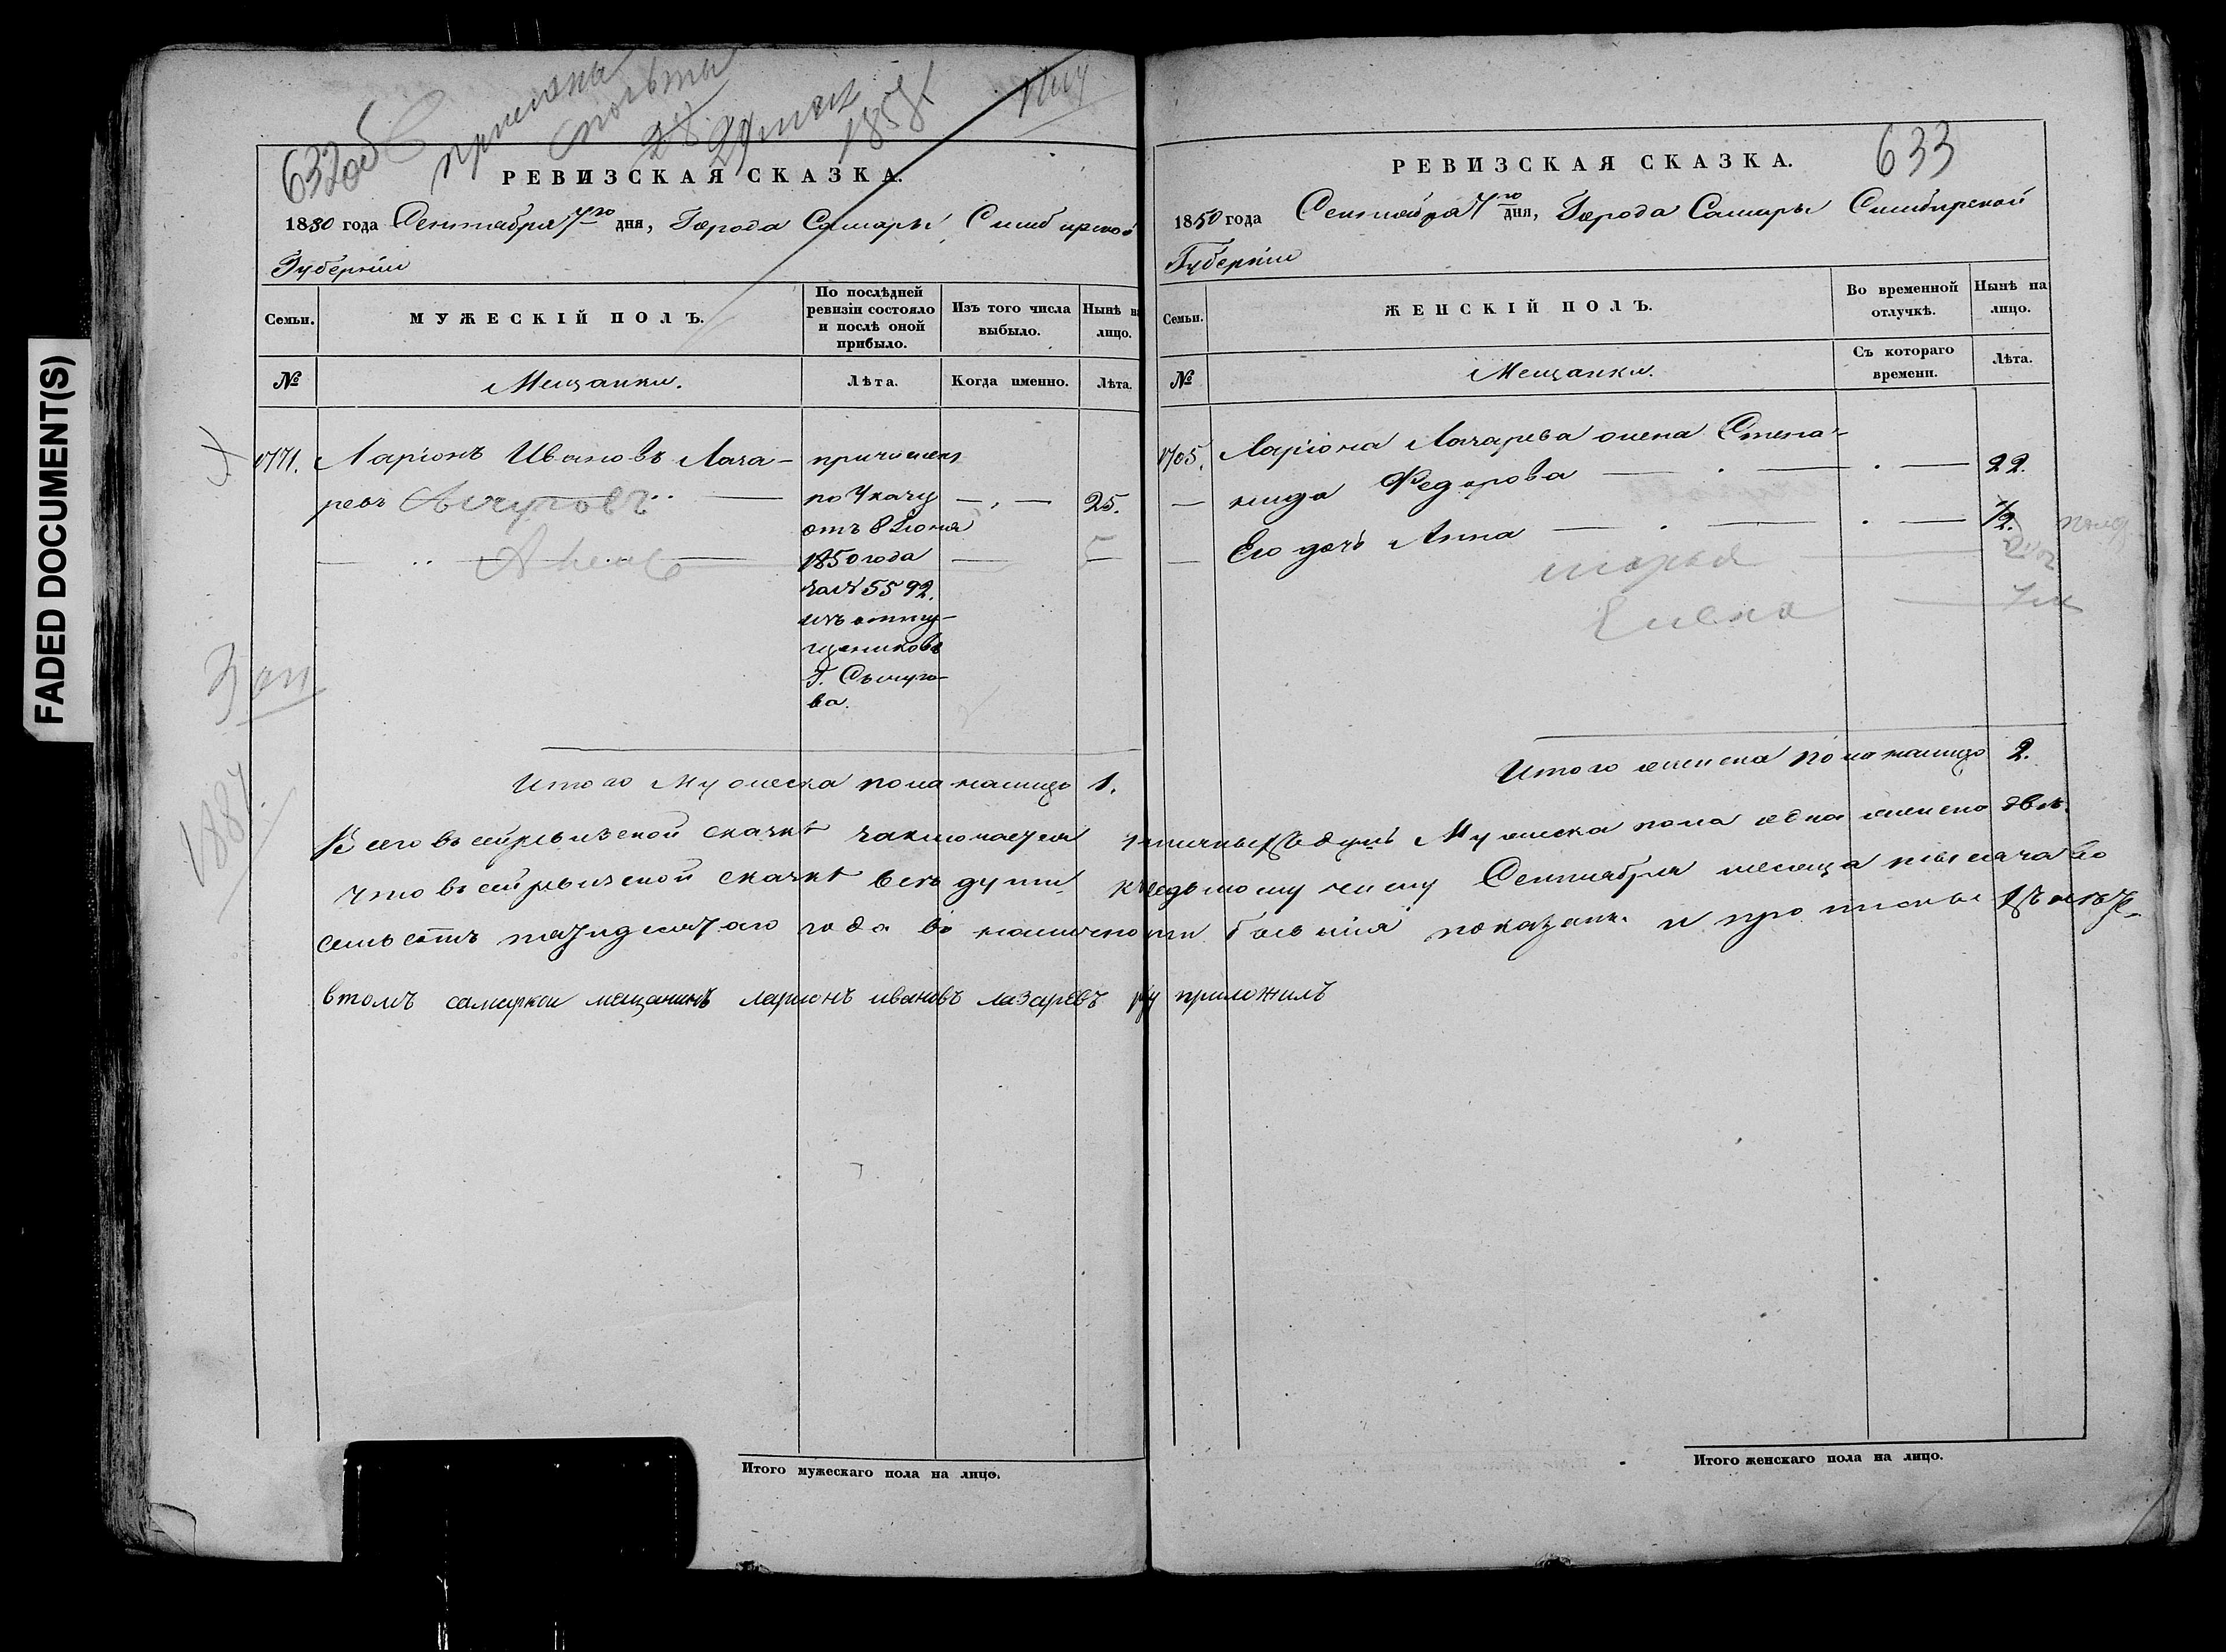 FADED DOCUMENT(S)
632об
1858
РЕВИЗСКАЯ СКАЗКА.
1850 года Сентября 7го дня, Города Самары, Симбирской
Губернии
Семьи.
МУЖЕСКІЙ ПОЛЪ.
По послѣдней
ревизіи состояло
и послѣ оной
прибыло.
Изъ того числа
выбыло.
Нынѣ на
лицо.
№
Мещанки.
Лѣта.
Когда именно.
Лѣта.
1771. Ларіонъ Ивановъ Лаза-
ревъ
причислен
по Указу
отъ 8 Іюня
1850 года
за № 5592.
изъ отпу-
щениковъ
Г.
ва.
25.
5
Итого Мужеска пола налицо 1.
1887
633
РЕВИЗСКАЯ СКАЗКА.
1850 года Сентября 7го дня, Города Самары Симбирской
Губерніи
Семьи.
ЖЕНСКІЙ ПОЛЪ.
Во временной
отлучкѣ.
Нынѣ на
лицо.
№
Мещанки.
Съ котораго
времени.
Лѣта.
1705. Ларіона Лазарева жена Степа-
нида Федорова 22.
Его дочь Анна 1/2.
Марья
Елена
Итого женска пола налицо 2.
Всего в сей ревизской сказкѣ заключается наличныхъ душъ Мужеска пола одна женско двѣ.
что в сей ревизской сказкѣ всѣ души к седьмому числу Сентября месяца тысяча во
семьсотъ пятидесятаго года в наличности бывшія показаны и прописных нѣтъ
втомъ самаркои мещанинъ ларионъ ивановъ лазаревъ ру приложилъ
Итого мужескаго пола на лицо.
Итого женскаго пола на лицо.